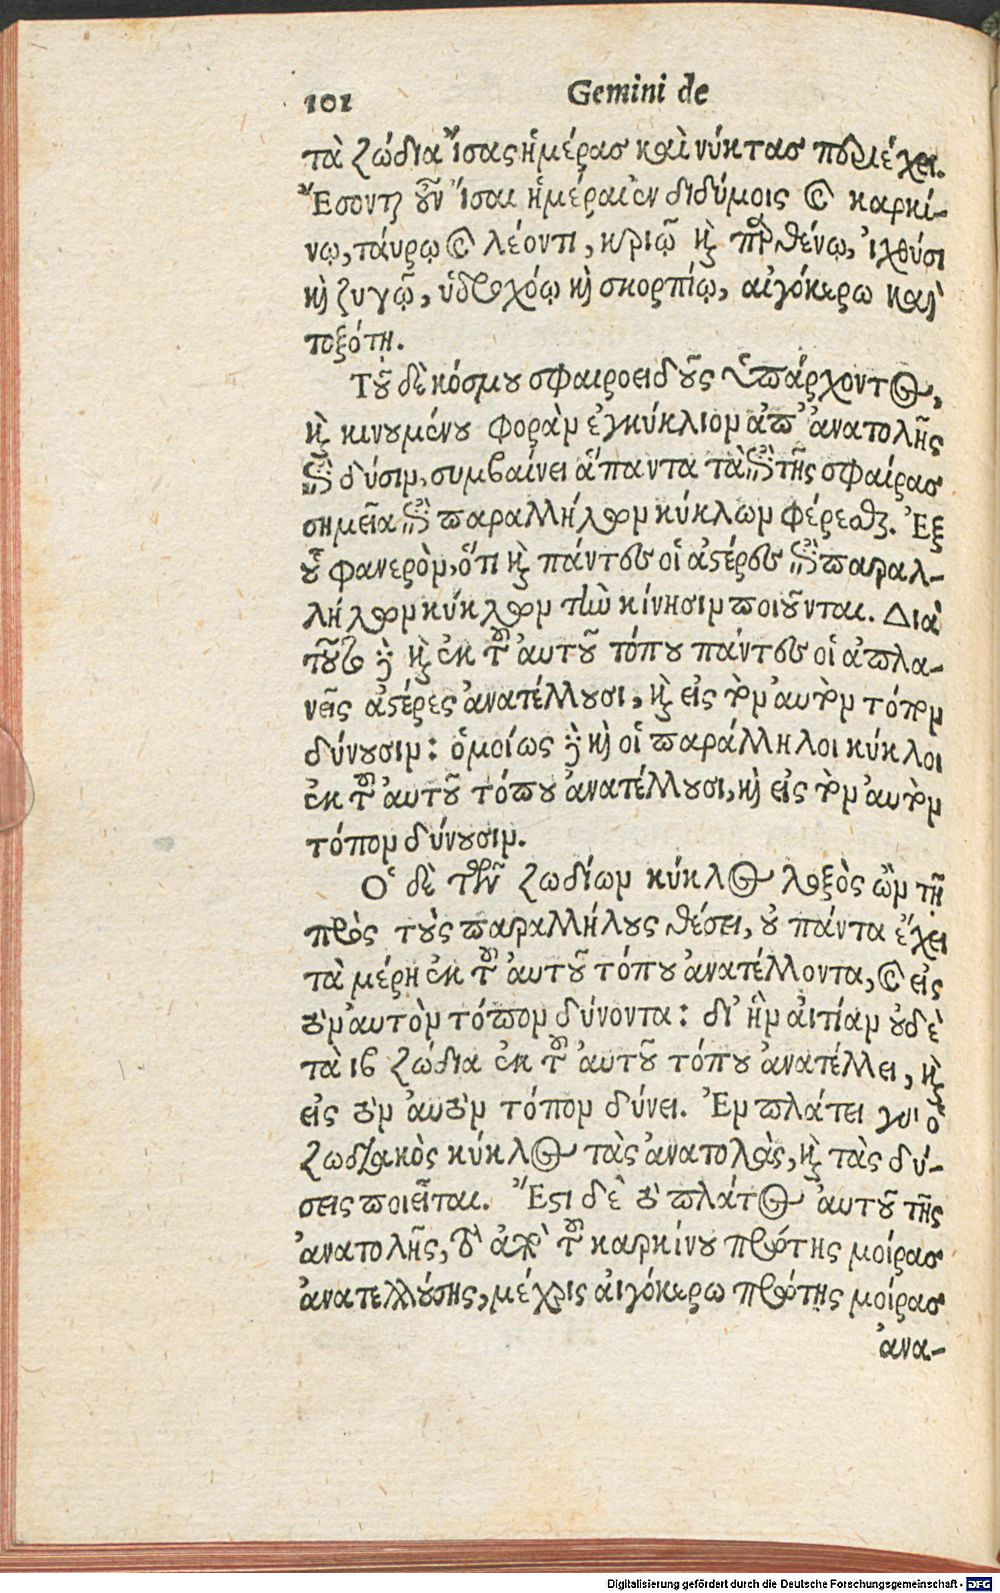 101 Gemini de
τὰ ζώδια ἴσας ἡμέρας καὶ νύκτας περιέχει.
Ἔσονται οὖν ἴσαι ἡμέραι ἐν διδύμοις καὶ καρκί-
νῳ, τάυρῳ καὶ λέοντι, κριῷ καὶ παρθένῳ, ἰχθύσι
καὶ ζυγῷ, ὑδροχόῳ καὶ σκορπίῳ, αἰγόκερω καὶ
τοξότῃ.
Τοῦ δὲ κόσμου σφαιροειδοῦς ὑπάρχοντος,
καὶ κινουμένου φορὰν ἐγκύκλιον ἀπ' ἀνατολῆς
ἐπὶ δύσιν, συμβαίνει ἅπαντα τὰ ἐπὶ τῆς σφαίρας
σημεῖα ἐπὶ παραλλήλων κύκλων φέρεσθαι. Ἐξ
οὗ φανερὸν, ὅτι καὶ πάντες οἱ ἀστέρες ἐπὶ παραλ-
λήλων κύκλων τὴν κίνησιν ποιοῦνται. Διὰ
τοῦτο γὰρ καὶ ἐκ τοῦ αὐτοῦ τόπου πάντες οἱ ἀπλα-
νεῖς ἀστέρες ἀνατέλλουσι, καὶ εἰς τὸν αὐτὸν τόπον
δύνουσιν: ὁμοίως γὰρ καὶ οἱ παράλληλοι κύκλοι
ἐκ τοῦ αὐτοῦ τόπου ἀνατέλλουσι, καὶ εἰς τὸν αὐτὸν
τόπον δύνουσιν.
Ὁ δὲ τῶν ζωδίων κύκλος λοξὸς ὢν τῇ
πρὸς τοὺς παραλλήλους θέσει, οὐ πάντα ἔχει
τὰ μέρη ἐκ τοῦ αὐτοῦ τόπου ἀνατέλλοντα, καὶ εἰς
τὸν αὐτὸν τόπον δύνοντα: δι' ἣν ἀιτίαν οὐδὲ
τὰ ιβ ζώδια ἐκ τοῦ αὐτοῦ τόπου ἀνατέλλει, καὶ
εἰς τὸν αὐτὸν τόπον δύνει. Ἐν πλάτει γὰρ ὁ
ζωδιακὸς κύκλος τὰς ἀνατολὰς, καὶ τὰς δύ-
σεις ποιεῖται. Ἔστι δὲ τὸ πλάτος αὐτοῦ τῆς
ἀνατολῆς, τὸ ἀπὸ τοῦ καρκίνου πρώτης μοίρας
ἀνατελλούσης, μέχρις αἰγόκερω πρώτης μοίρας
ἀνα-
Digitalisierung gefördert durch die Deutsche Forschungsgemeinschaft - DFG